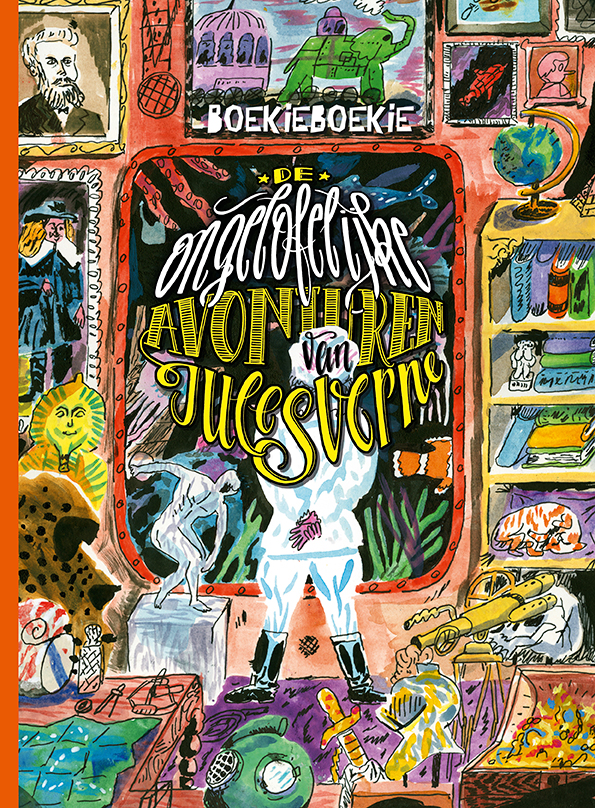 BOEKIEBOEKIE
DE
ongelofelijke
AVONTUREN
van
Jules Verne